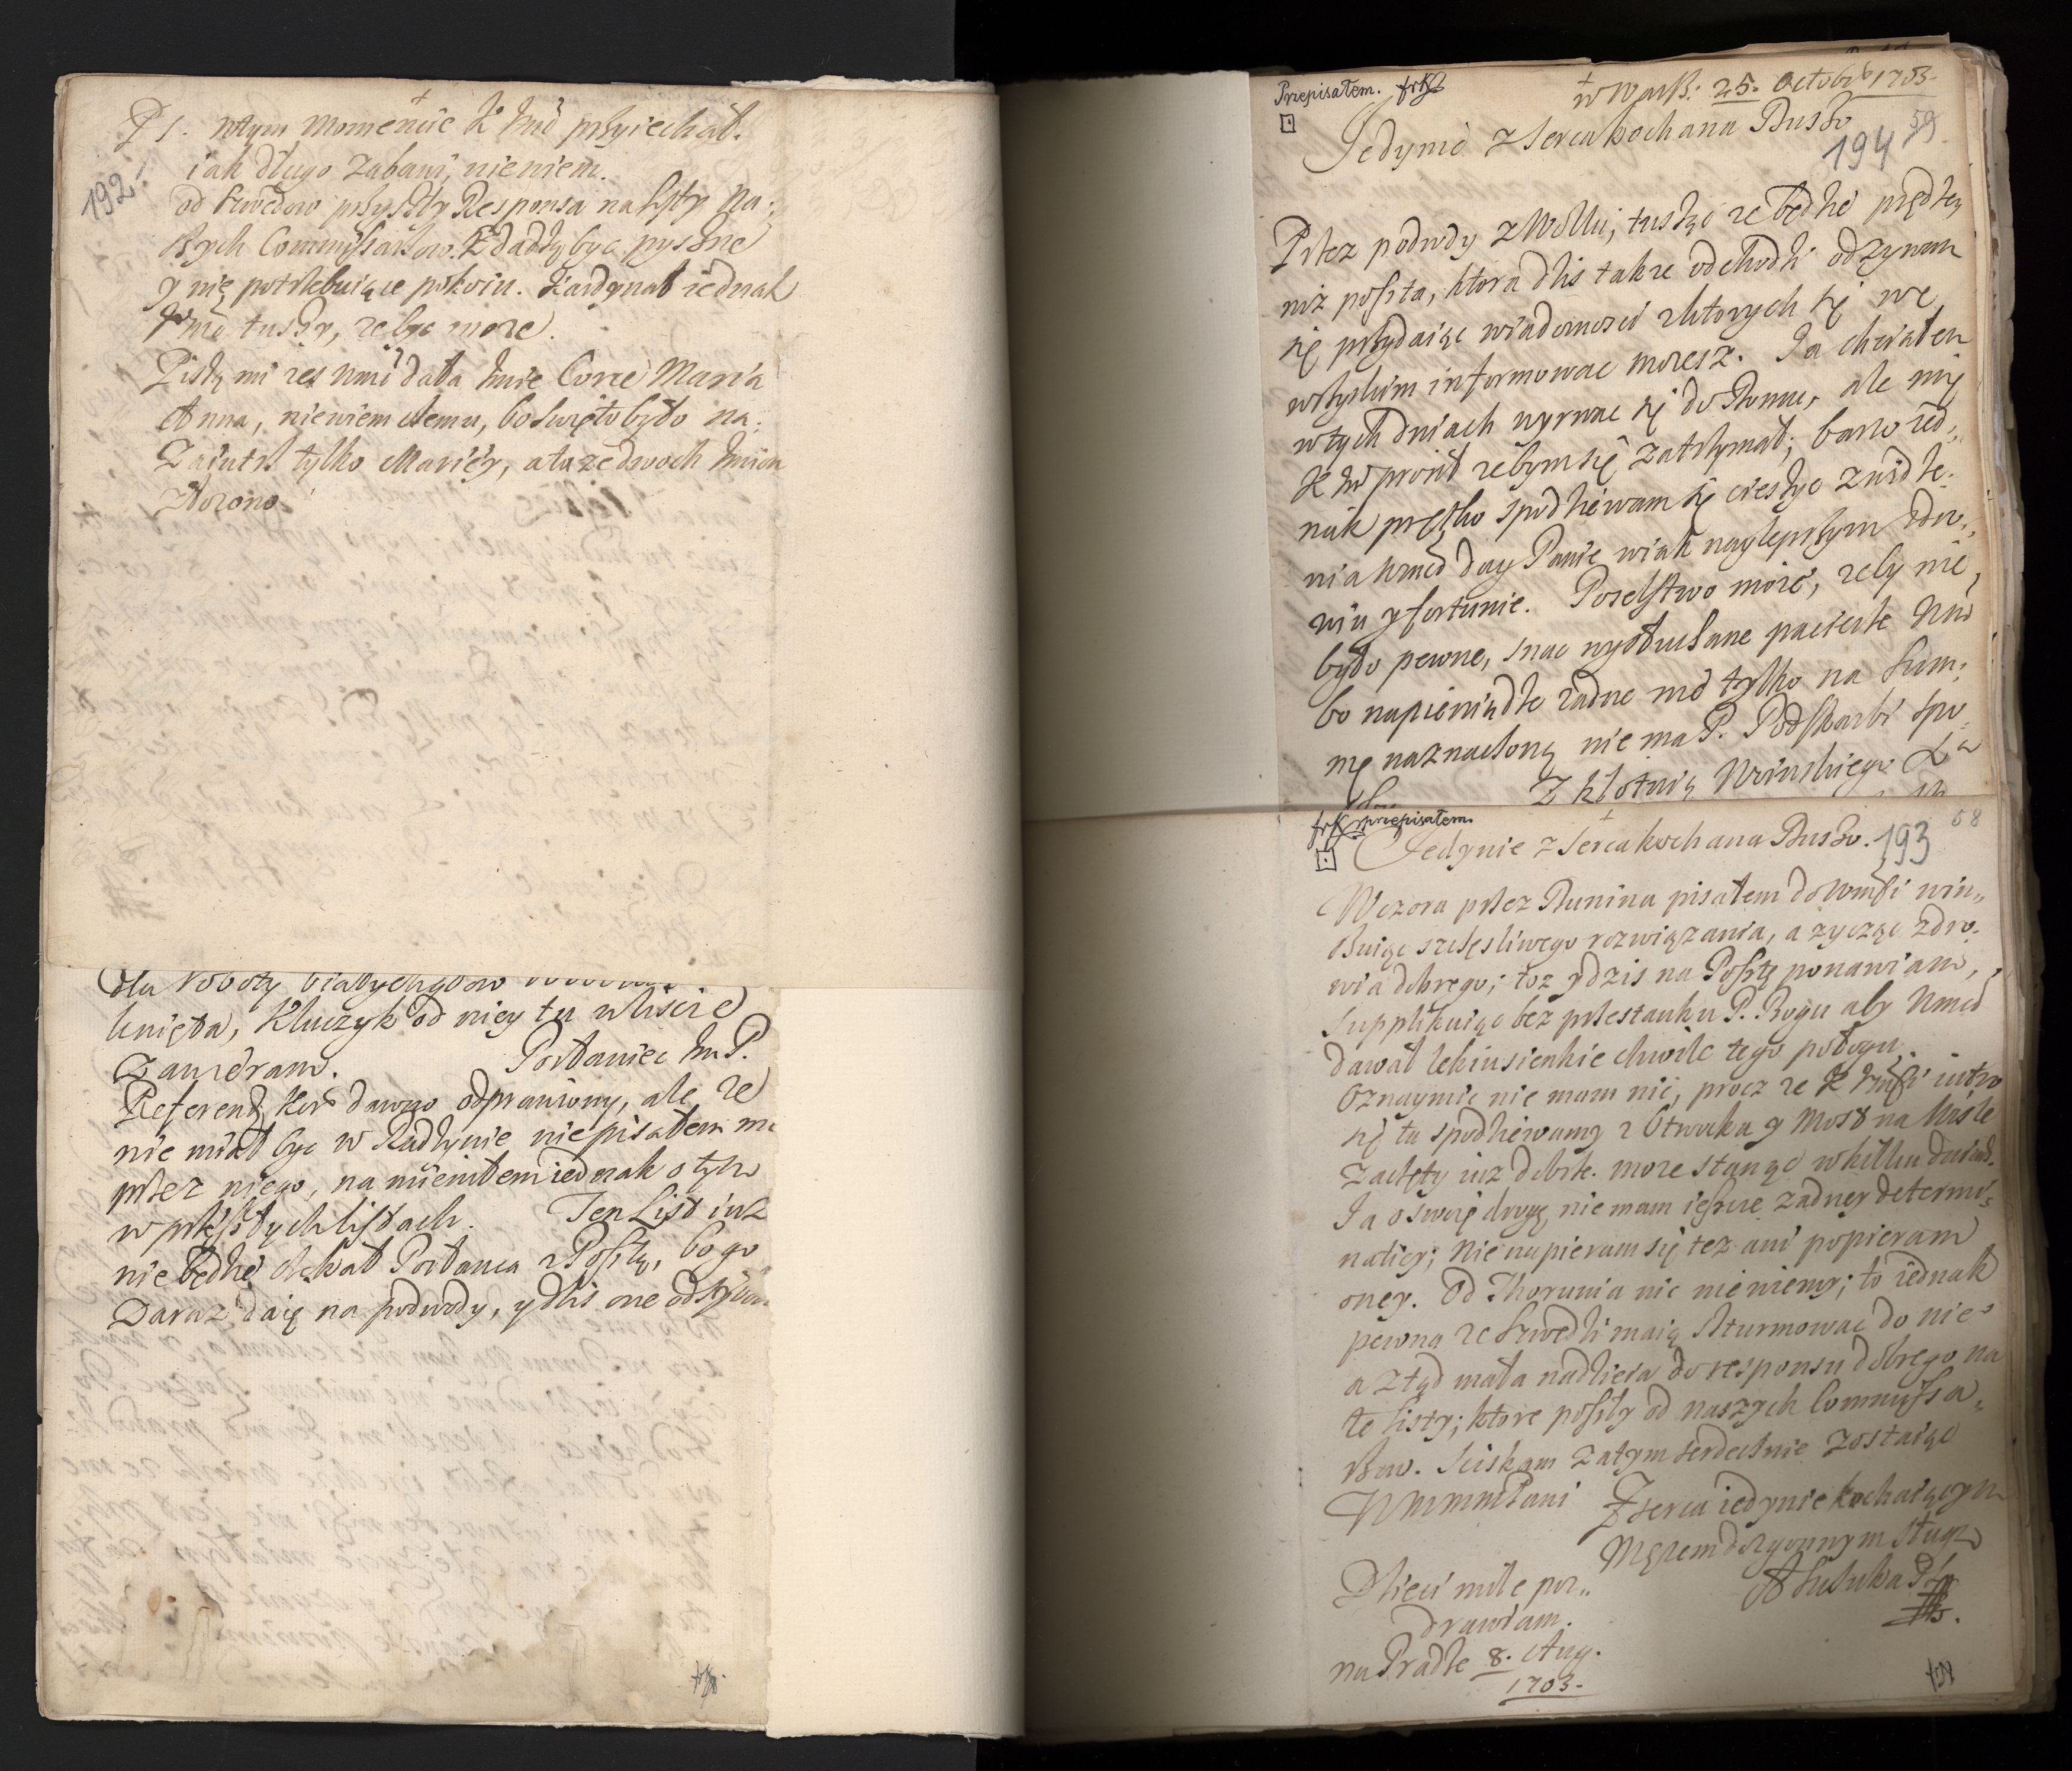 192.
PS. wtym momencie K Jmć przyiechał.
iak długo zabawi, niewiem.
od Szwedow przyszły Responsa na Listy na:
szych Commissarzow. Zdadzą byc pyszne
y nie potrzebuiące pokoiu. Kardynał iednak
Jmć tuszy, ze byc moze.
Piszą mi zes Wmć dała Imie Corce Maria
Anna, niewiem czemu, bo swięto było na:
zaiutrz tylko Mariey, a tu ze dwoch Imion
złozono
dla Roboty białychgłow
knięta, Kluczyk od niey tu w liscie
zawieram. Posłaniec Im P.
Referend Kor dawno odprawiony, ale ze
nie miał byc w Radzynie nie pisałem
przez niego, namieniłem iednak o tym
w przeszłych listach. Ten List iuz
nie będzie czekał Posłanca z Posztą, bo go
zaraz daię na podwody, y dzis one
Przepisałem.
w Warsz: 25. Octobr 1703
194 59
Jedynie z serca kochana Duszo
Przez podwody z Wolli, tusząc ze będzie prędzey
niz poszta, ktora dzis takze odchodzi odzywam
się przydaiąc wiadomosci z ktorych się we
wszytkim informowac mozesz. Ja chciałem
w tych dniach wyrwac się do Domu, ale mię
K Jm prosił zebym się zatrzymał; barzo ied:
nak prętko spodziewam się cieszyc z widze:
nia Wmci day Panie w iak naylepszym zdro:
wiu y fortunie. Poselstwo moie, zeby nie
było pewne, snac wysłuchane pacierze Wmć
bo na pieniądze zadne nie tylko na Sum:
mę naznaczoną nie ma P. Podskarbi spo
Z kłotnią
przepisałem.
193 58
Jedynie z serca kochana Duszo.
Wczora przez Dunina pisałem do Wmści win:
szuiąc szczęsliwego rozwiązania, a zycząc zdro:
wia dobrego; toz y dzis na Posztę ponawiam,
supplikuiąc bez przestanku P. Bogu aby Wmci
dawał lekiusienkie chwile tego połogu.
Oznaymic nie mam nic, procz ze K Jmści iutro
się tu spodziewamy z Otwocka y Most na Wisle
zaczęty iuz dobrze. moze stanąc w kilku dniach.
Ja o swoię drogę, nie mam ieszcze zadney determi:
natiey; nie napieram się tez ani popieram
oney. Od Thorunia nic nie wiemy; to iednak
pewna ze Szwedzi maią szturmowac do nie°
a ztąd mała nadzieia do responsu dobrego na
te listy; ktore poszły od naszych Commissa:
rzow. Sciskam zatym serdecznie zostaiąc
WMMMPani Z serca iedynie kochaiącym
Męzem dozgonnym sługą
Dzieci mile poz:
drawiam.
na Pradze 8. Aug.
1703.